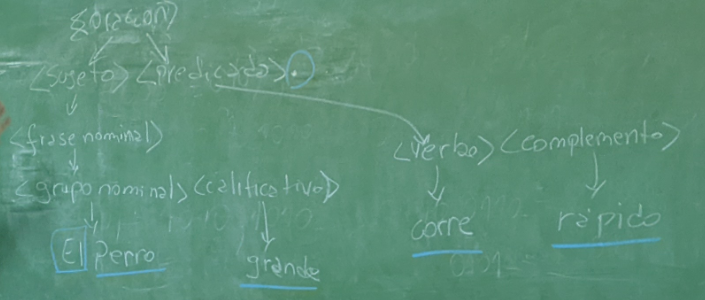 <oración>
<sujeto> <predicado>.
<frase nominal>
<verbo> <complemento>
<grupo nominal> <calificativo>
corre rápido
El perro grande